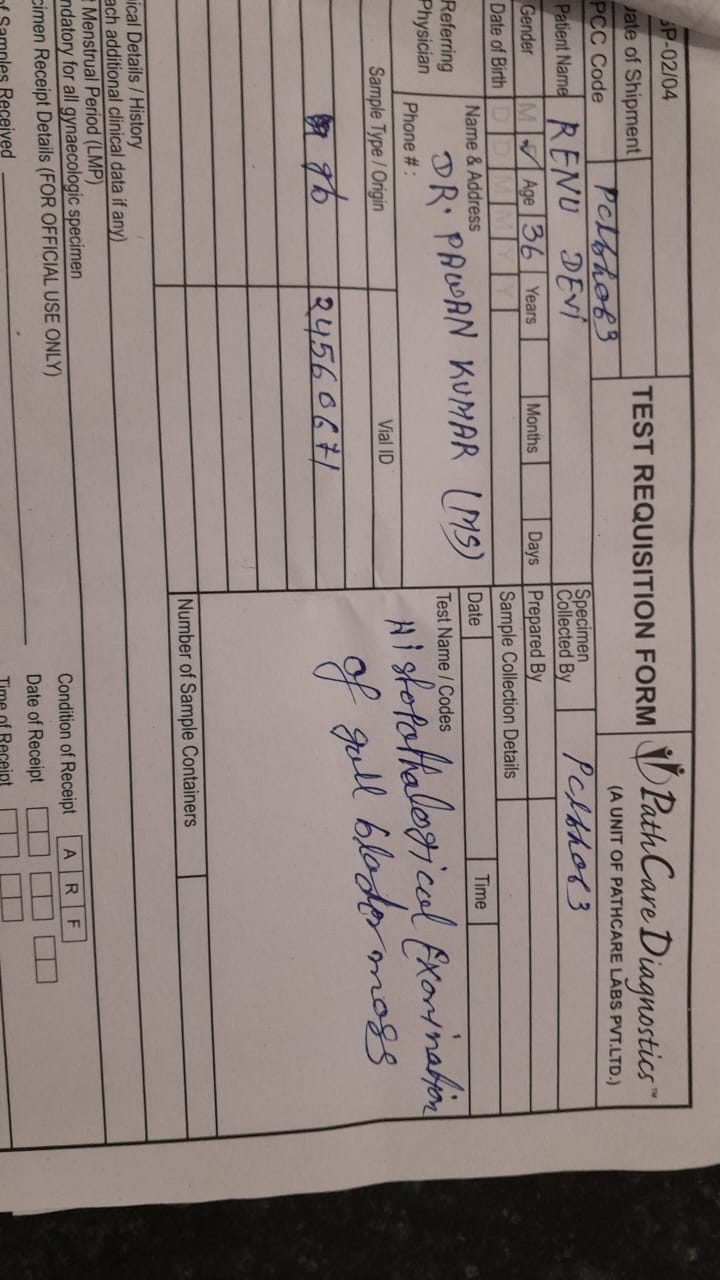 SP-02/04
TEST REQUISITION FORM
PathCare Diagnostics™
(A UNIT OF PATHCARE LABS PVT.LTD.)
Date of Shipment
PCC Code
Patient Name RENU DEVI
Specimen Collected By
Gender M ✓ Age 36 Years Months Days
Prepared By
Date of Birth D D M M Y Y
Sample Collection Details
Date Time
Referring Physician
Name & Address
DR. PAWAN KUMAR (MS)
Phone # :
Test Name / Codes
Histopathalogical Examination
of gall blader mass
Sample Type / Origin Vial ID
gb 24560671
Number of Sample Containers
ical Details / History
ach additional clinical data if any)
t Menstrual Period (LMP)
ndatory for all gynaecologic specimen
cimen Receipt Details (FOR OFFICIAL USE ONLY)
Condition of Receipt A R F
Date of Receipt
of Samples Received
Time of Receipt